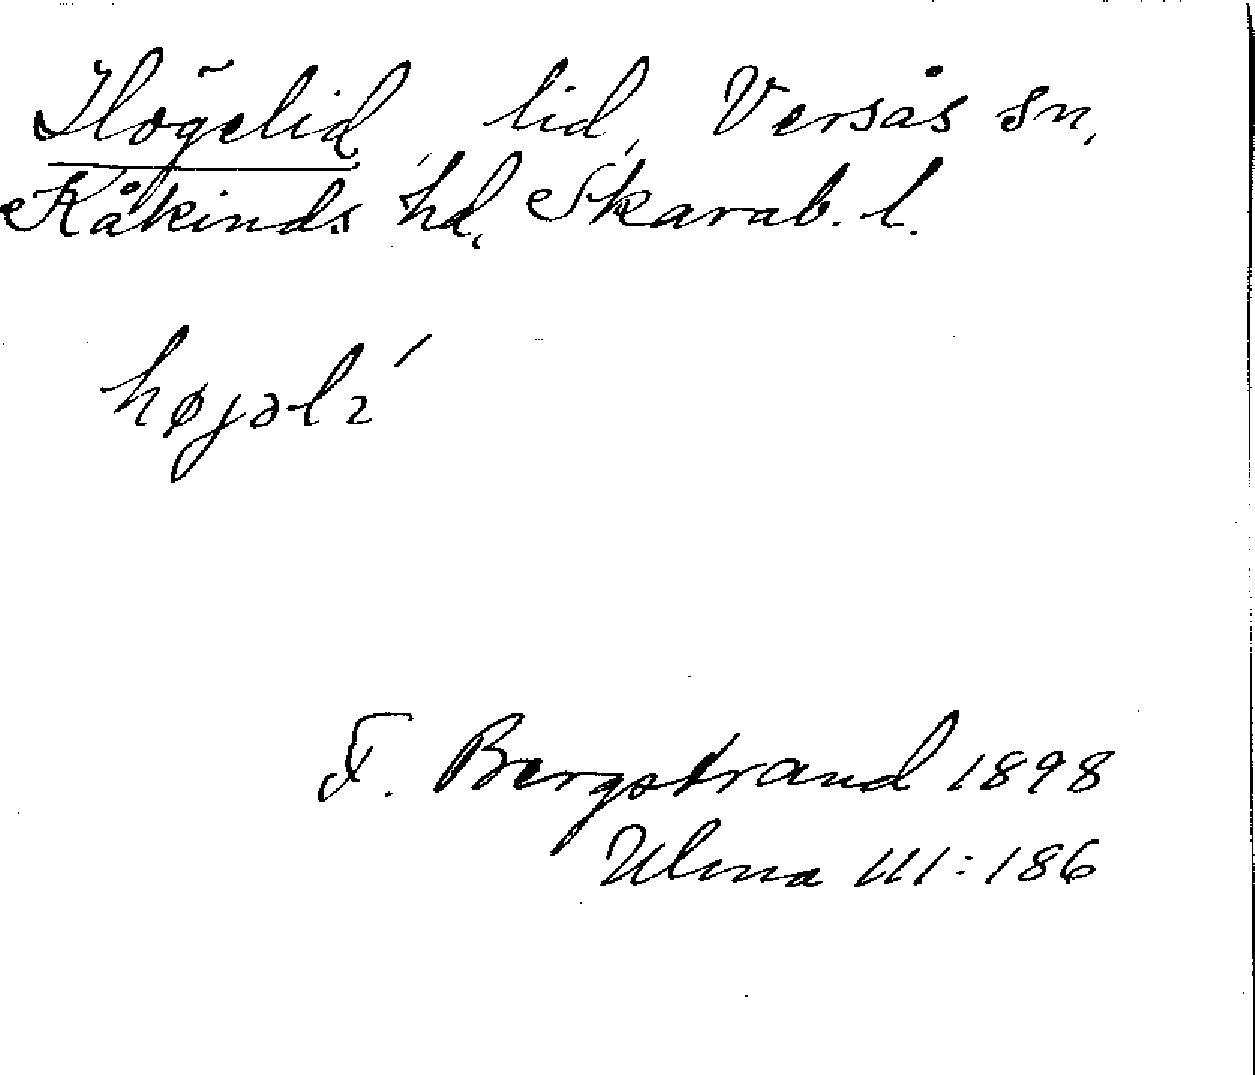 Högelid lid, Versås sn,
Kåkinds hd, Skarab. l.
højəlı ́
F. Bergstrand 1898
Ulma III:186